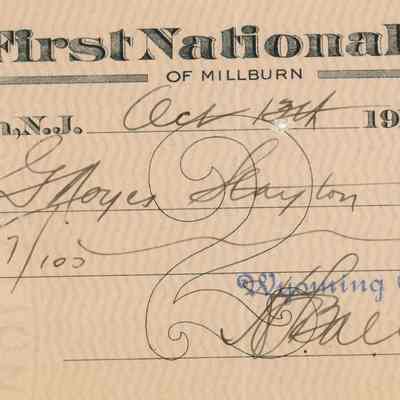 First National
OF MILLBURN
N.J. Oct 13th 19
G Noyes Slayton
7/100
Wyoming